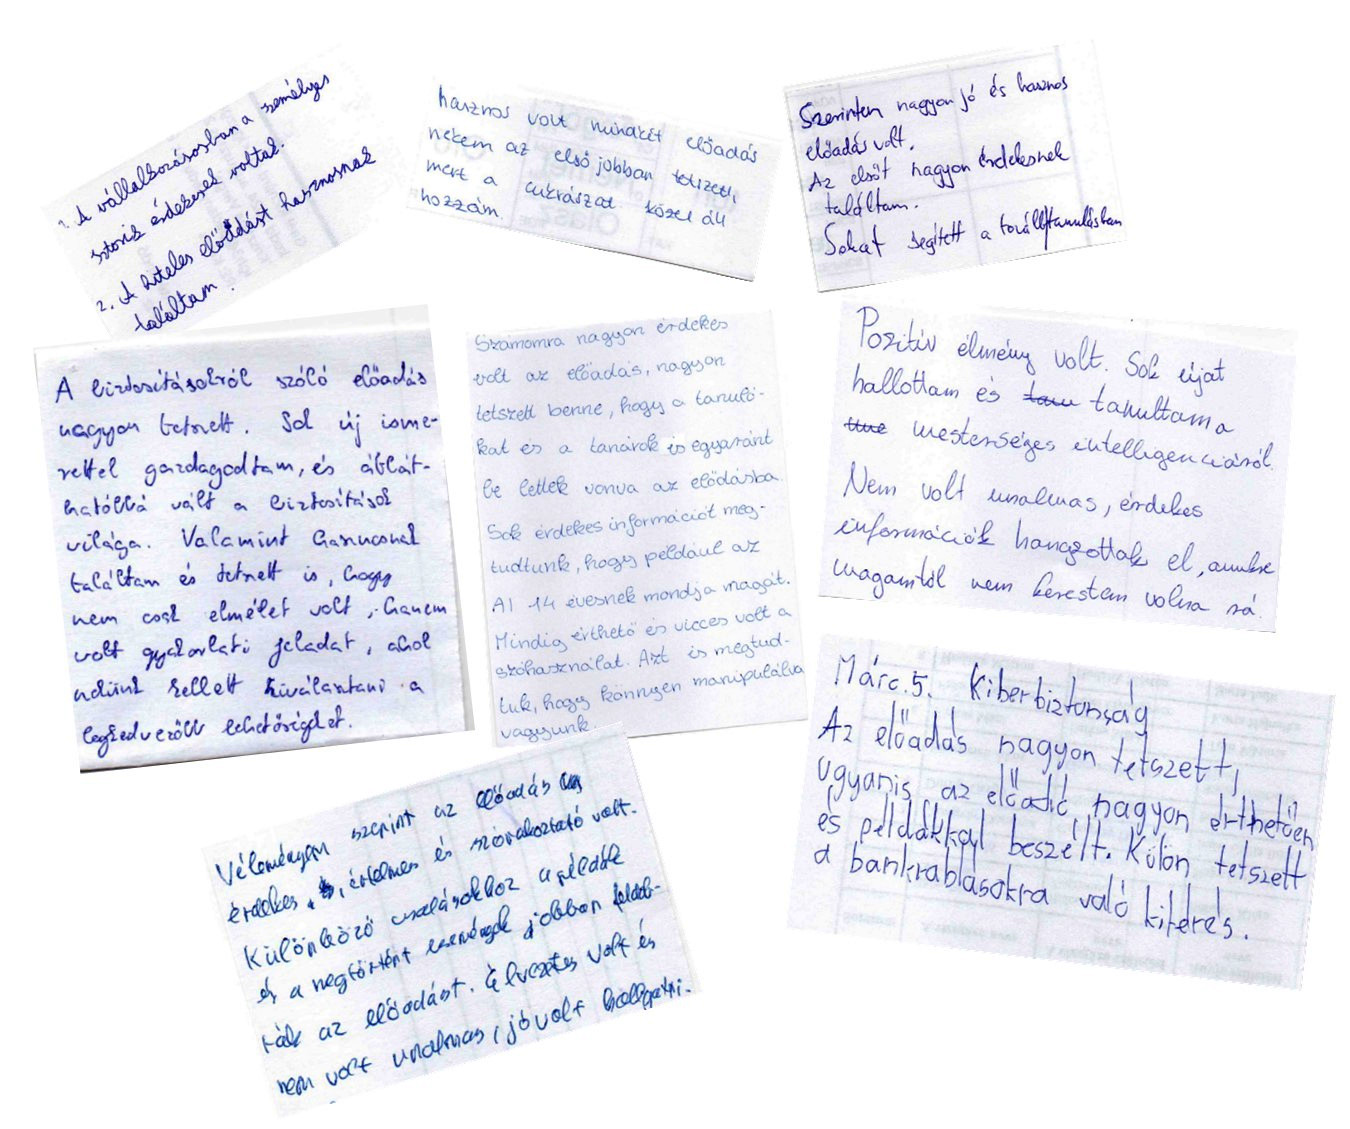 1. A vállalkozásosban a személyes
storik érdekesek voltak.
2. A hiteles előadást hasznosnak
találtam.
hasznos volt mindkét előadás
nekem az első jobban tetszett,
mert a cukrászat közel áll
hozzám.
Szerintem nagyon jó és hasznos
előadás volt.
Az elsőt nagyon érdekesnek
találtam.
Sokat segített a továbbtanulásban
A biztosításokról szóló előadás
nagyon tetszett. Sok új isme-
rettel gazdagodtam, és átlát-
hatóbbá vált a biztosítások
világa. Valamint hasznosnak
találtam és tetszett is, hogy
nem csak elmélet volt, hanem
volt gyakorlati feladat, ahol
nekünk kellett kiválasztani a
legkedvezőbb lehetőséget.
Számomra nagyon érdekes
volt az előadás, nagyon
tetszett benne, hogy a tanuló-
kat és a tanárok is egyaránt
be lettek vonva az elődásba.
Sok érdekes információt meg-
tudtunk, hogy például az
AI 14 évesnek mondja magát.
Mindig érthető és vicces volt a
szóhasználat. Azt is megtud-
tuk, hogy könnyen manipulálva
vagyunk.
Pozitív élmény volt. Sok újat
hallottam és tanultam a
mesterséges intelligenciáról.
Nem volt unalmas, érdekes
információk hangzottak el, amikre
magamtól nem kerestem volna rá.
Márc. 5. Kiberbiztonság
Az előadás nagyon tetszett,
ugyanis az előadó nagyon érthetően
és példákkal beszélt. Külön tetszett
a bankrablásokra való kitérés.
Véleményem szerint az előadás
érdekes, értelmes és szórakoztató volt.
Különböző csalásokhoz a példák
és a megtörtént események jobban feldob-
ták az előadást. Élvezetes volt és
nem volt unalmas, jó volt hallgatni.